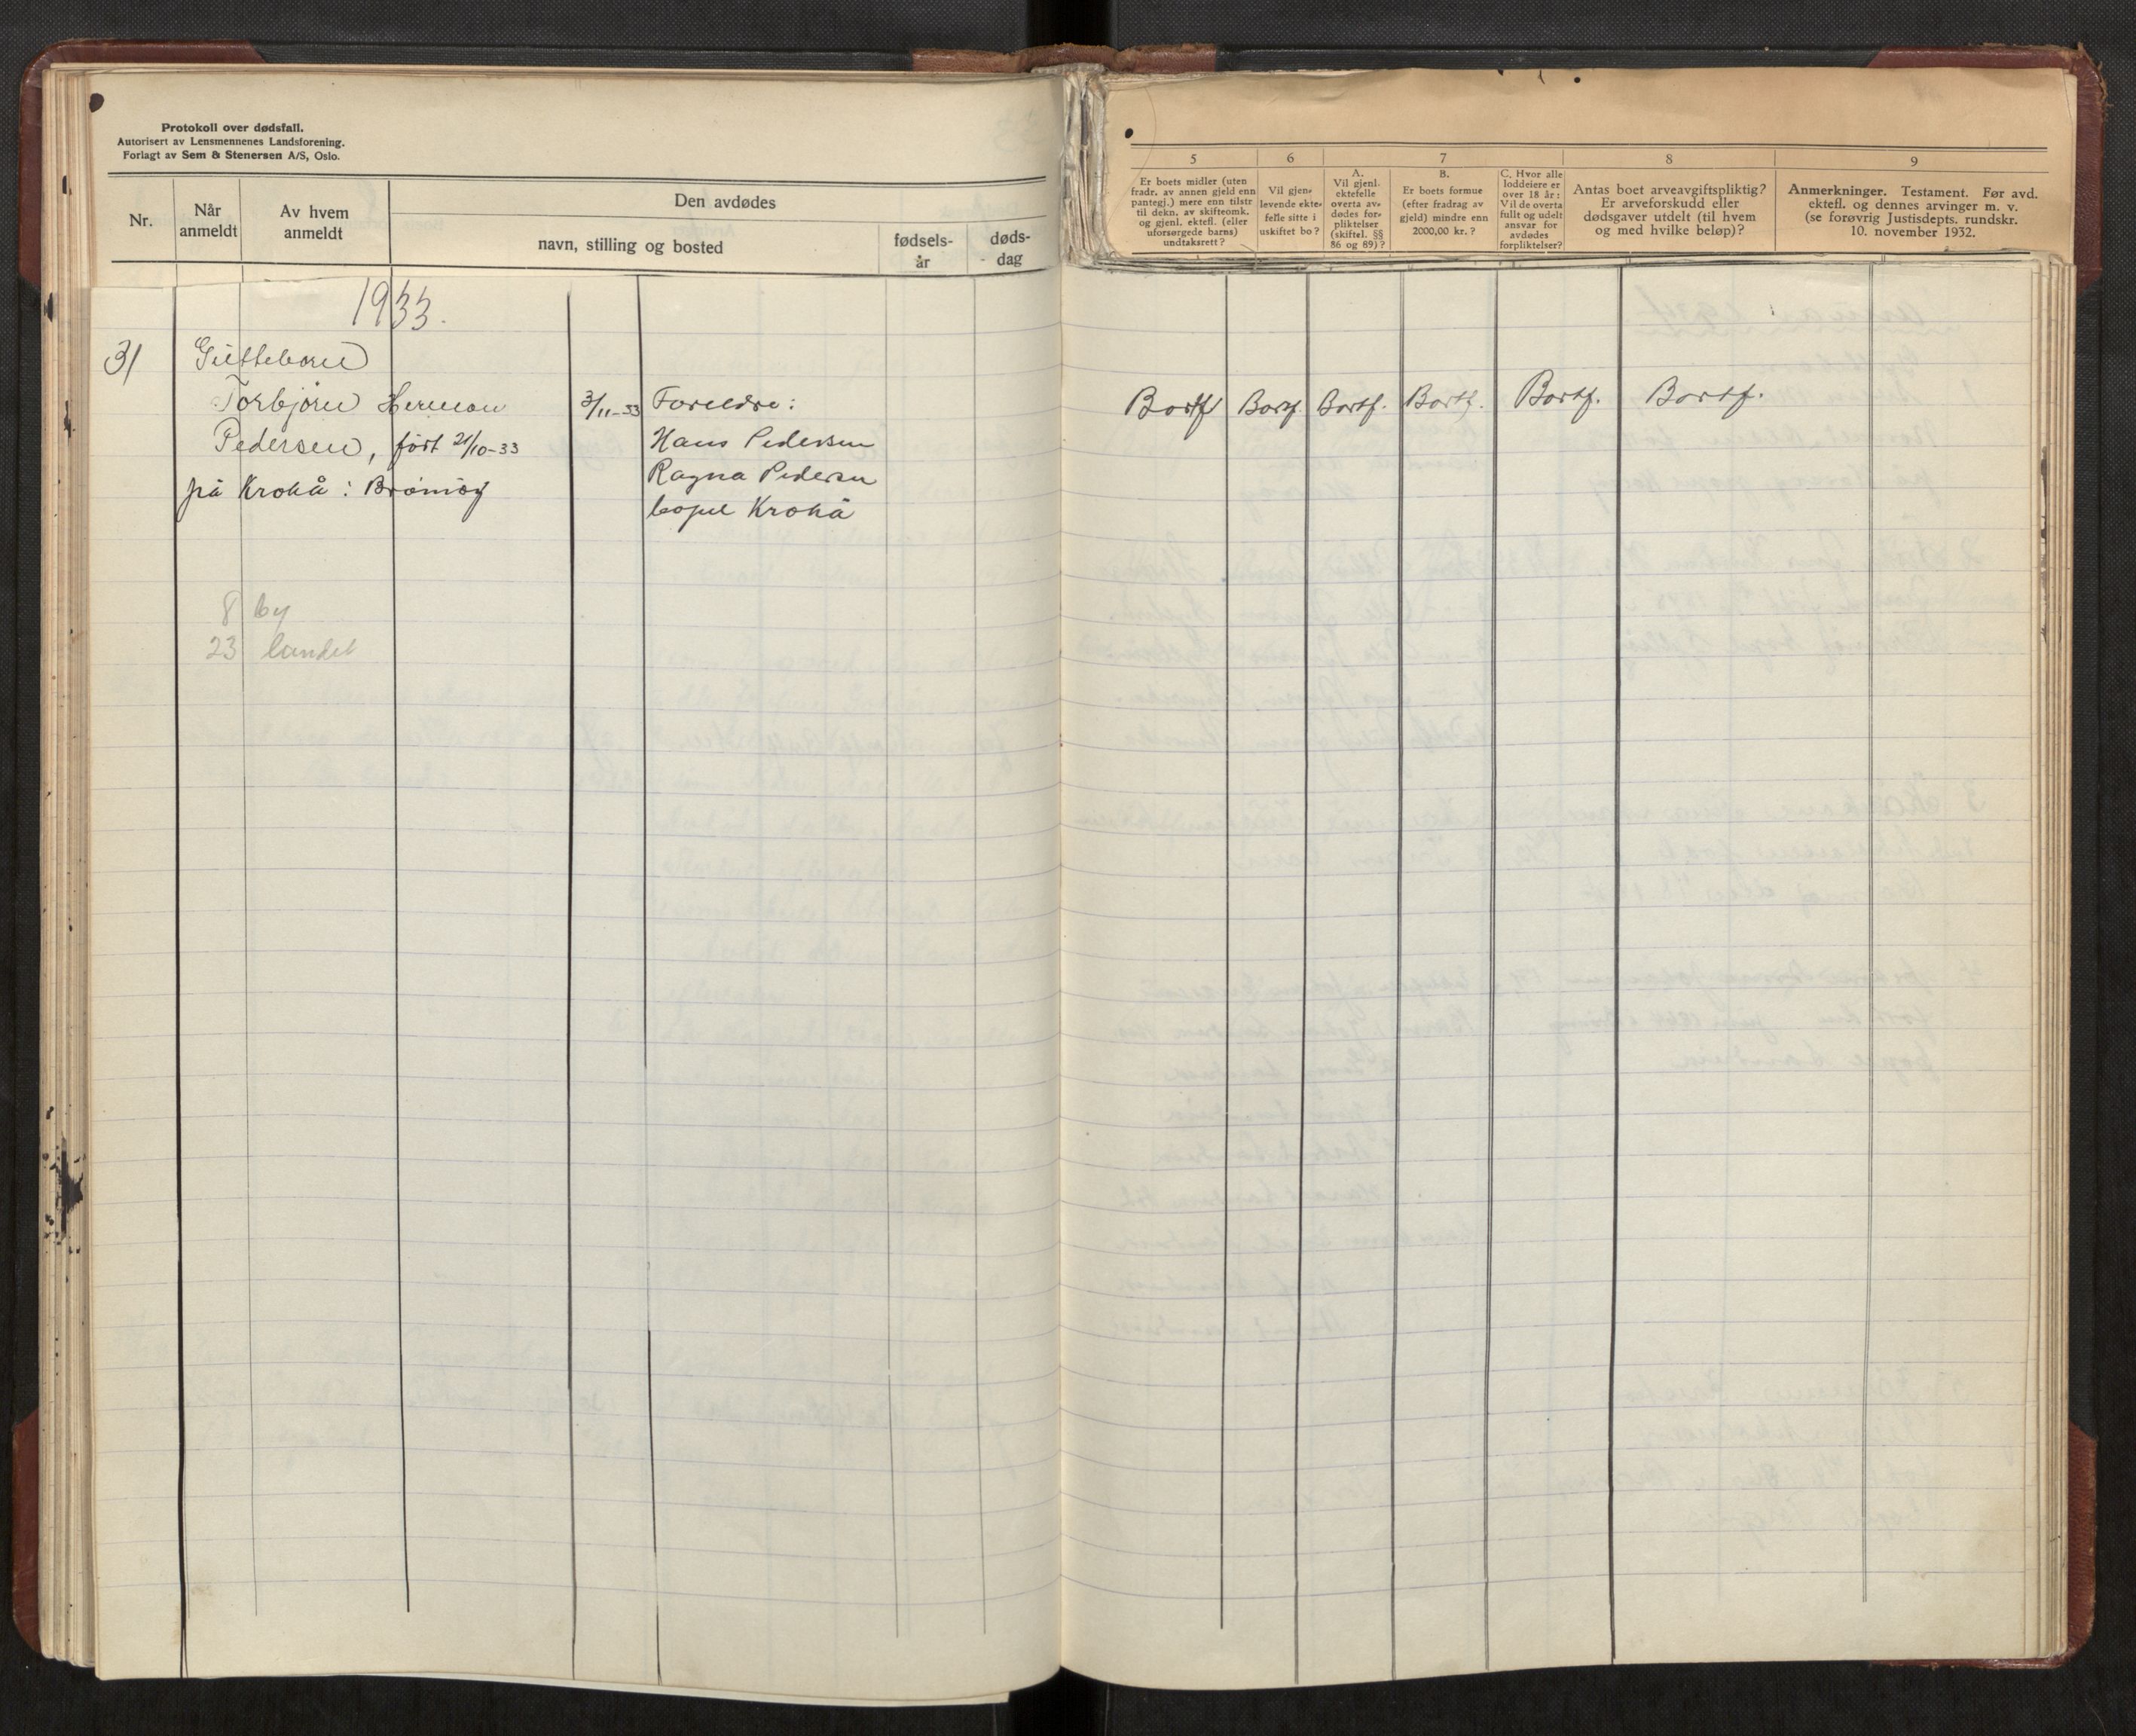 Protokoll over dødsfall.
Autorisert av Lensmennenes Landsforening.
Forlagt av Sem & Stenersen A/S, Oslo.
Nr.
Når
anmeldt
Av hvem
anmeldt
Den avdødes
navn, stilling og bosted
fødsels-
år
døds-
dag
1933.
31
Gutteborn
Torbjørn Herman
Pedersen, født 21/10-33
på Krokå i Brønnøy
3/11-33
Foreldre:
Hans Pedersen
Ragna Pedersen
bopel Krokå
8 by
23 landet
5
Er boets midler (uten
fradr. av annen gjeld enn
pantegj.) mere enn tilstr
til dekn. av skifteomk.
og gjenl. ektefl. (eller
uforsørgede barns)
undtaksrett?
6
Vil gjen-
levende ekte-
felle sitte i
uskiftet bo?
7
A.
Vil gjenl.
ektefelle
overta av-
dødes for-
pliktelser
(skiftel. §§
86 og 89)?
B.
Er boets formue
(efter fradrag av
gjeld) mindre enn
2000,00 kr.?
C. Hvor alle
loddeiere er
over 18 år:
Vil de overta
fullt og udelt
ansvar for
avdødes
forpliktelser?
8
Antas boet arveavgiftspliktig?
Er arveforskudd eller
dødsgaver utdelt (til hvem
og med hvilke beløp)?
9
Anmerkninger. Testament. Før avd.
ektefl. og dennes arvinger m. v.
(se forøvrig Justisdepts. rundskr.
10. november 1932.
Bortf Bortf. Bortf. Bortf. Bortf. Bortf.